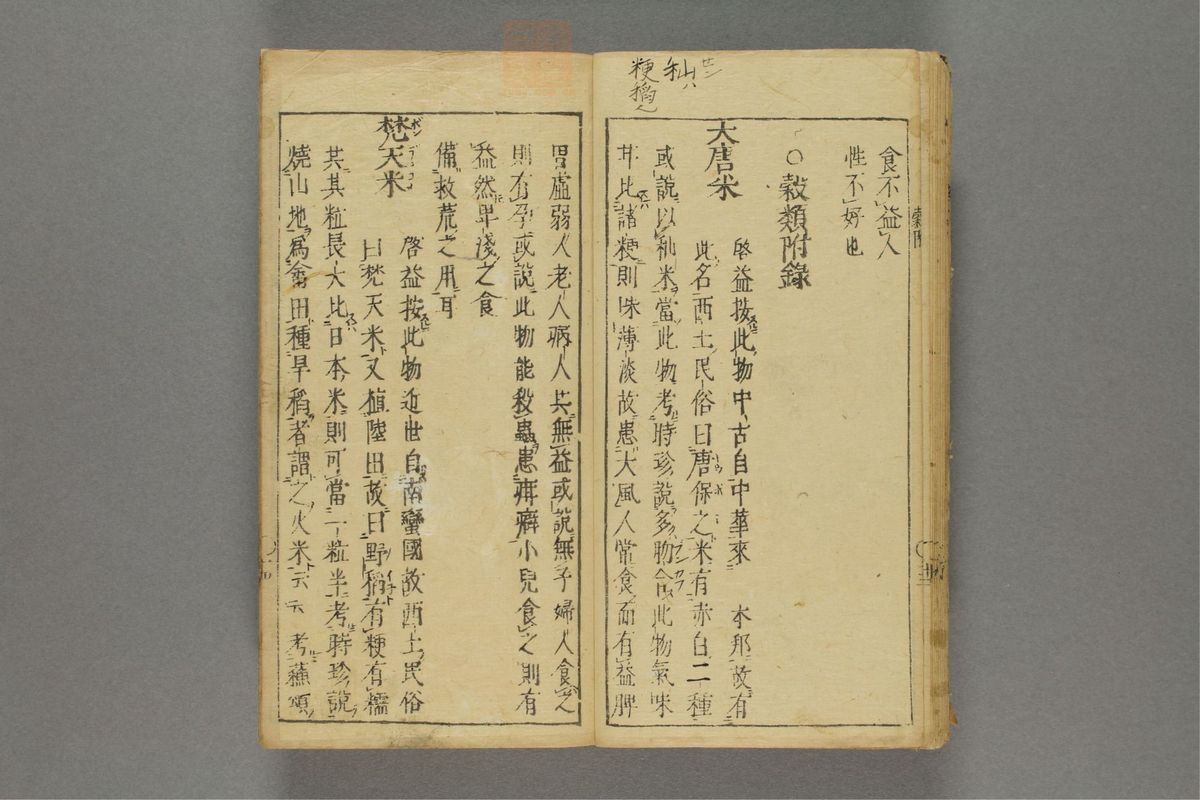 秈ハ
粳稻
食不益人
性不好也
○穀類附錄
大唐米
啓益按此物中古自中華來　本邦故有
此名西土民俗曰唐保之米有赤白二種
或說以秈米當此物考時珍說多脗合此物氣味
共比諸粳則味薄淡故患大風人常食而有益脾
胃虛弱人老人病人共無益或說無子婦人食之
則有孕或說此物能殺蟲患疳癖小兒食之則有
益然卑淺之食
備救荒之用耳
梵天米
啓益按此物近世自南蠻國故西土民俗
曰梵天米又植陸田故曰野稻有粳有糯
其粒長大比日本米則可當一粒半考時珍說
燒山地爲畬田種旱稻者謂之火米云云　考蘇頌